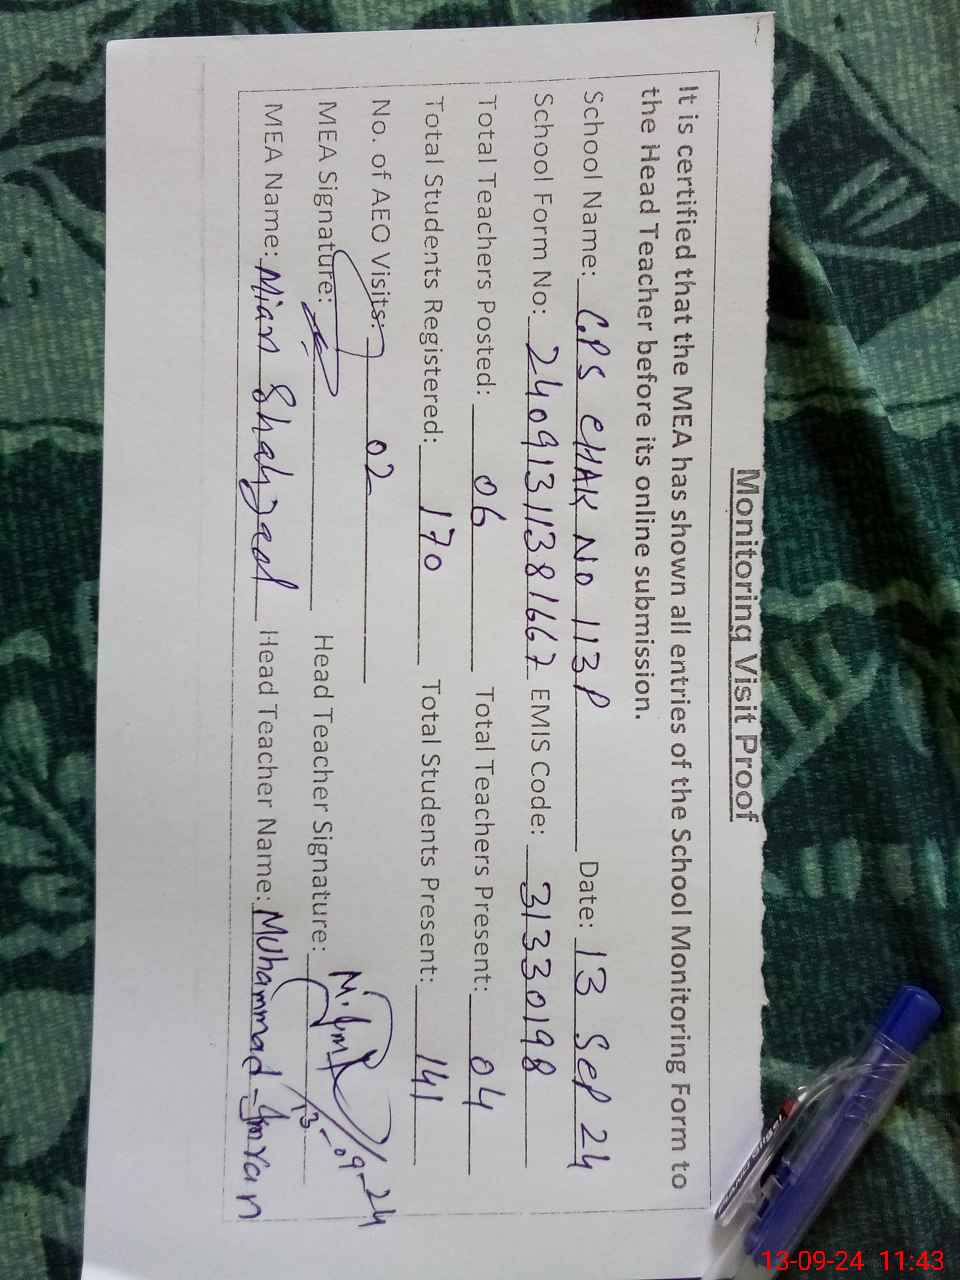 Monitoring Visit Proof
It is certified that the MEA has shown all entries of the School Monitoring Form to
the Head Teacher before its online submission.
School Name: G.PS CHAK NO 113P Date: 13 Sep 24
School Form No: 24091311381667 EMIS Code: 31330198
Total Teachers Posted: 06 Total Teachers Present: 04
Total Students Registered: 170 Total Students Present: 141
No. of AEO Visits: 02
MEA Signature: Head Teacher Signature: 13-09-24
MEA Name: Mian Shahzad Head Teacher Name: Muhammad Imran
13-09-24 11:43